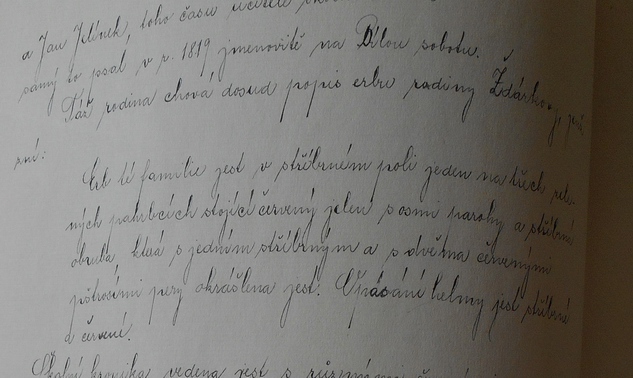 a Jan Jelínek, toho času učitel
samý to psal v r. 1819, jmenovitě na Bílou sobotu.
Táž rodina chová dosud popis erbu rodiny Žďárkovy,
zní:
Erb té familie jest v stříbrném poli jeden na třech zele-
ných pahrbcích stojící červený jelen s osmi parohy a stříbrná
obruba, ktrá s jedním stříbrným a s dvěma červenými
pštrosími pery okrášlena jest. Opásání helmy jest stříbrné
a červené.
Školní kronika vedena jest s různými